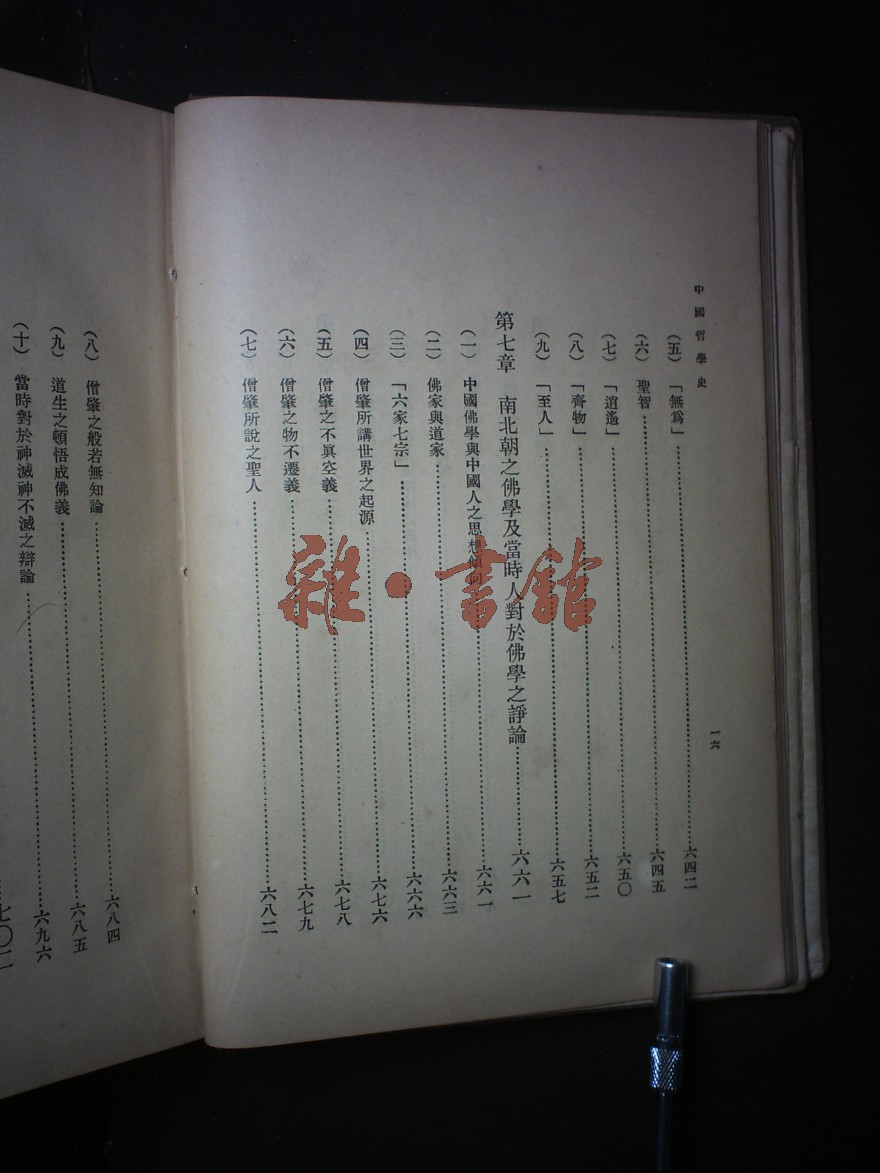 中國哲學史
一六
(五)「無爲」……六四二
(六)聖智……六四五
(七)「逍遙」……六五〇
(八)「齊物」……六五二
(九)「至人」……六五七
第七章 南北朝之佛學及當時人對於佛學之諍論……六六一
(一)中國佛學與中國人之思想傾向……六六一
(二)佛家與道家……六六三
(三)「六家七宗」……六六六
(四)僧肇所講世界之起源……六七六
(五)僧肇之不眞空義……六七八
(六)僧肇之物不遷義……六七九
(七)僧肇所說之聖人……六八二
(八)僧肇之般若無知論……六八四
(九)道生之頓悟成佛義……六八五
(十)當時對於神滅神不滅之辯論……六九六
七〇二
雜·書館